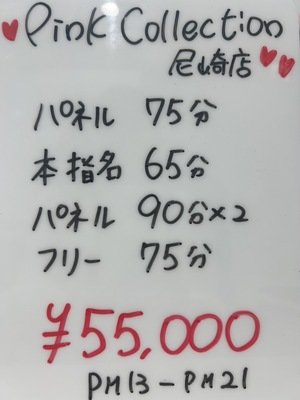 Pink Collection
尼崎店
パネル 75分
本指名 65分
パネル 90分×2
フリー 75分
¥55,000
PM13-PM21